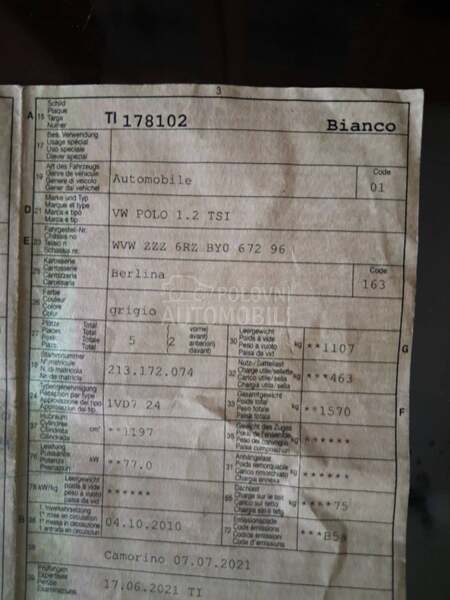 3
A 15 Schild Plaque Targa Numer TI 178102 Bianco
17 Bes. Verwendung Usage spécial Uso speciale Diever spezial
19 Art des Fahrzeugs Genre de véhicule Genere di veicolo Gener dal vehichel Automobile Code 01
D 21 Marke und Typ Marque et type Marca e tipo Marca e tip. VW POLO 1.2 TSI
E 23 Fahrgestell-Nr. Châssis no Telaio n WVW ZZZ 6RZ BY0 672 96
25 Karosserie Carrosserie Carrozzeria Berlina Code 163
26 Farbe Couleur Colore Colur grigio
POLOVNI AUTOMOBILI
27 Plätze Places Posti Total Totale Total 5 2 vorne avant anteriori davant 30 Leergewicht Poids à vide Peso a vuoto Paisa da vid kg **1107 G
18 Stammnummer N° matricule N. di matricola Nr. da matricla 213.172.074 32 Nutz-/Sattellast Charge utile/sellette Carico utile/sella Chargia utila/sella kg ***463
24 Typengenehmigung Réception par type Approvazione del tipo Approvaziun dal tip 1VD7 24 33 Gesamtgewicht Poids total Peso totale Paisa totala kg **1570 F
37 Hubraum Cylindrée Cilindrata Cilindrada cm³ **1197 35 Gewicht des Zuges Poids de l'ensemble kg ******
76 Leistung Puissance Potenza Prestaziun kW **77.0 31 Anhängelast Poids remorquable Carico rimorchiato Chargia annexa kg ******
78 kW/kg Leergewicht poids à vide peso a vuoto paisa da vid ****** Dachlast Charge sur le toit kg ****75
B 36 1. Inverkehrsetzung 1re mise en circulation 1. messa in circolazione 1. entrada en circulaziun 04.10.2010 72 Emissionscode Code émissions Codice emissioni Code d'emissiuns ***B5a
38 Camorino 07.07.2021
39 Prüfungen Expertises Perizie Examinaziuns 17.06.2021 TI